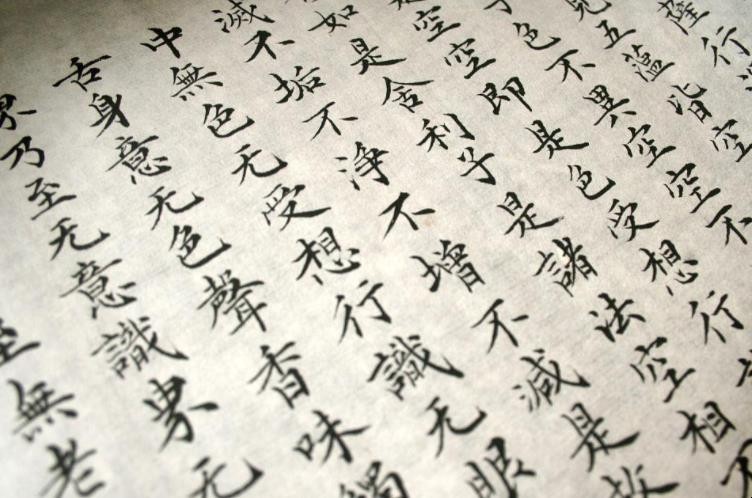 薩行
見五蘊皆空
子色不異空空不
是空空即是色受想行
如是舍利子是諸法空相不
滅不垢不淨不增不減是故
中無色无受想行識无眼
舌身意无色聲香味觸
界乃至无意識界无
至無老